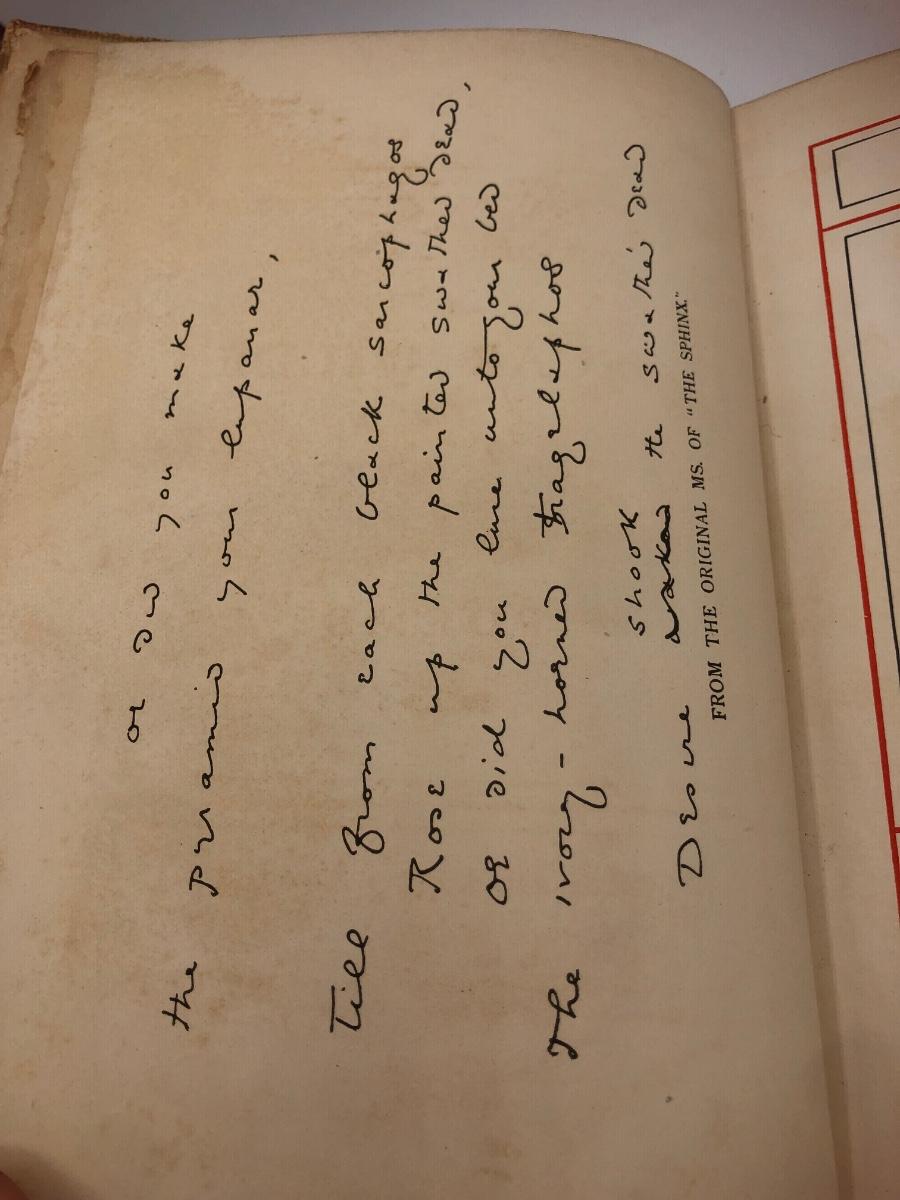 or did you make
the pyramid your lupanar,
Till from each black sarcophagos
Rose up the painted swathed dead,
or did you lure unto your bed
The ivory-horned tragelaphos
shook
Desire waked the swathèd dead
FROM THE ORIGINAL MS. OF "THE SPHINX."